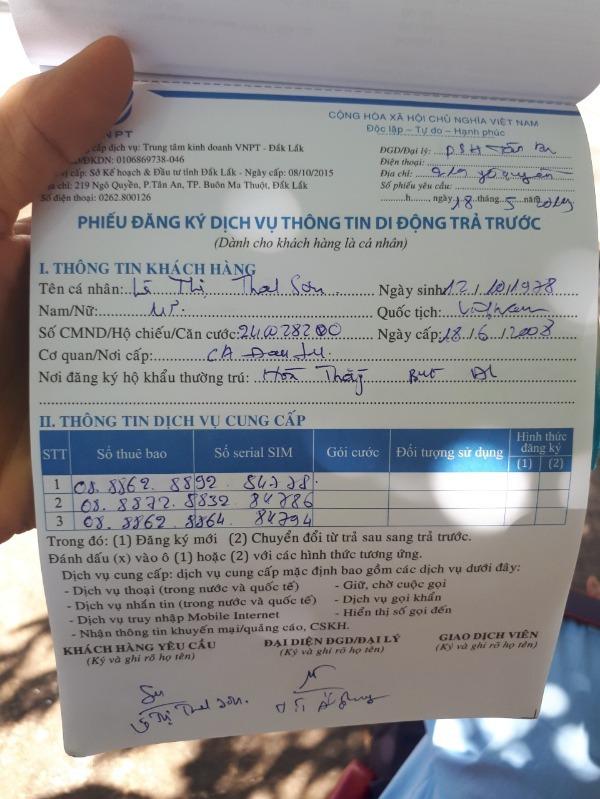 VNPT
CỘNG HÒA XÃ HỘI CHỦ NGHĨA VIỆT NAM
Độc lập – Tự do – Hạnh phúc
cấp dịch vụ: Trung tâm kinh doanh VNPT - Đắk Lắk
ĐKDN: 0106869738-046
cấp: Sở Kế hoạch & Đầu tư tỉnh Đắk Lắk - Ngày cấp: 08/10/2015
chỉ: 219 Ngô Quyền, P.Tân An, TP. Buôn Ma Thuột, Đắk Lắk
Số điện thoại: 0262.800126
ĐGD/Đại lý:
Điện thoại:
Địa chỉ:
Số phiếu yêu cầu:
h, ngày 18 tháng 5 năm 2019
PHIẾU ĐĂNG KÝ DỊCH VỤ THÔNG TIN DI ĐỘNG TRẢ TRƯỚC
(Dành cho khách hàng là cá nhân)
I. THÔNG TIN KHÁCH HÀNG
Tên cá nhân: Lê Thị Thal Sơn Ngày sinh 12/10/1978
Nam/Nữ: Quốc tịch: Việt Nam
Số CMND/Hộ chiếu/Căn cước: Ngày cấp: 18/6/2008
Cơ quan/Nơi cấp: CA
Nơi đăng ký hộ khẩu thường trú:
II. THÔNG TIN DỊCH VỤ CUNG CẤP
STT Số thuê bao Số serial SIM Gói cước Đối tượng sử dụng Hình thức đăng ký
(1) (2)
1 08.8862.8892 84778
2 08.8872.8832 84786
3 08.8862.8864 84794
Trong đó: (1) Đăng ký mới (2) Chuyển đổi từ trả sau sang trả trước.
Đánh dấu (x) vào ô (1) hoặc (2) với các hình thức tương ứng.
Dịch vụ cung cấp: dịch vụ cung cấp mặc định bao gồm các dịch vụ dưới đây:
- Dịch vụ thoại (trong nước và quốc tế) - Giữ, chờ cuộc gọi
- Dịch vụ nhắn tin (trong nước và quốc tế) - Dịch vụ gọi khẩn
- Dịch vụ truy nhập Mobile Internet - Hiển thị số gọi đến
- Nhận thông tin khuyến mại/quảng cáo, CSKH.
KHÁCH HÀNG YÊU CẦU ĐẠI DIỆN ĐGD/ĐẠI LÝ GIAO DỊCH VIÊN
(Ký và ghi rõ họ tên) (Ký và ghi rõ họ tên) (Ký và ghi rõ họ tên)
Lê Thị Thal Sơn